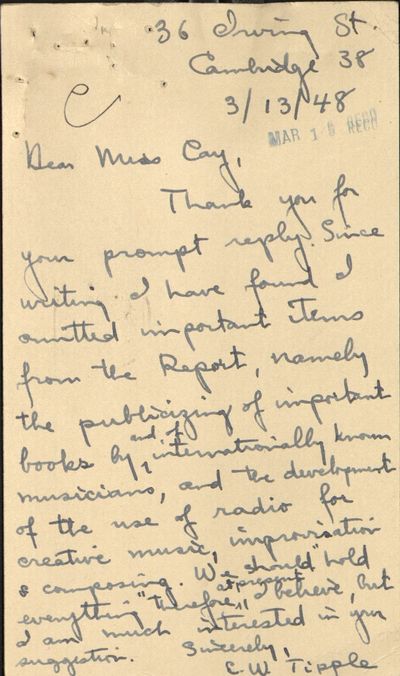 36 Irving St.
Cambridge 38
3/13/48
MAR 1 RECD
Dear Miss Cay,
Thank you for
your prompt reply. Since
writing I have found I
omitted important items
from the Report, namely
the publicizing of important
books by, and of internationally known
musicians, and the development
of the use of radio for
creative music, improvisation
& composing. We should "hold
everything" therefore, at present, I believe, but
I am much interested in your
suggestion. Sincerely,
C. W. Tipple